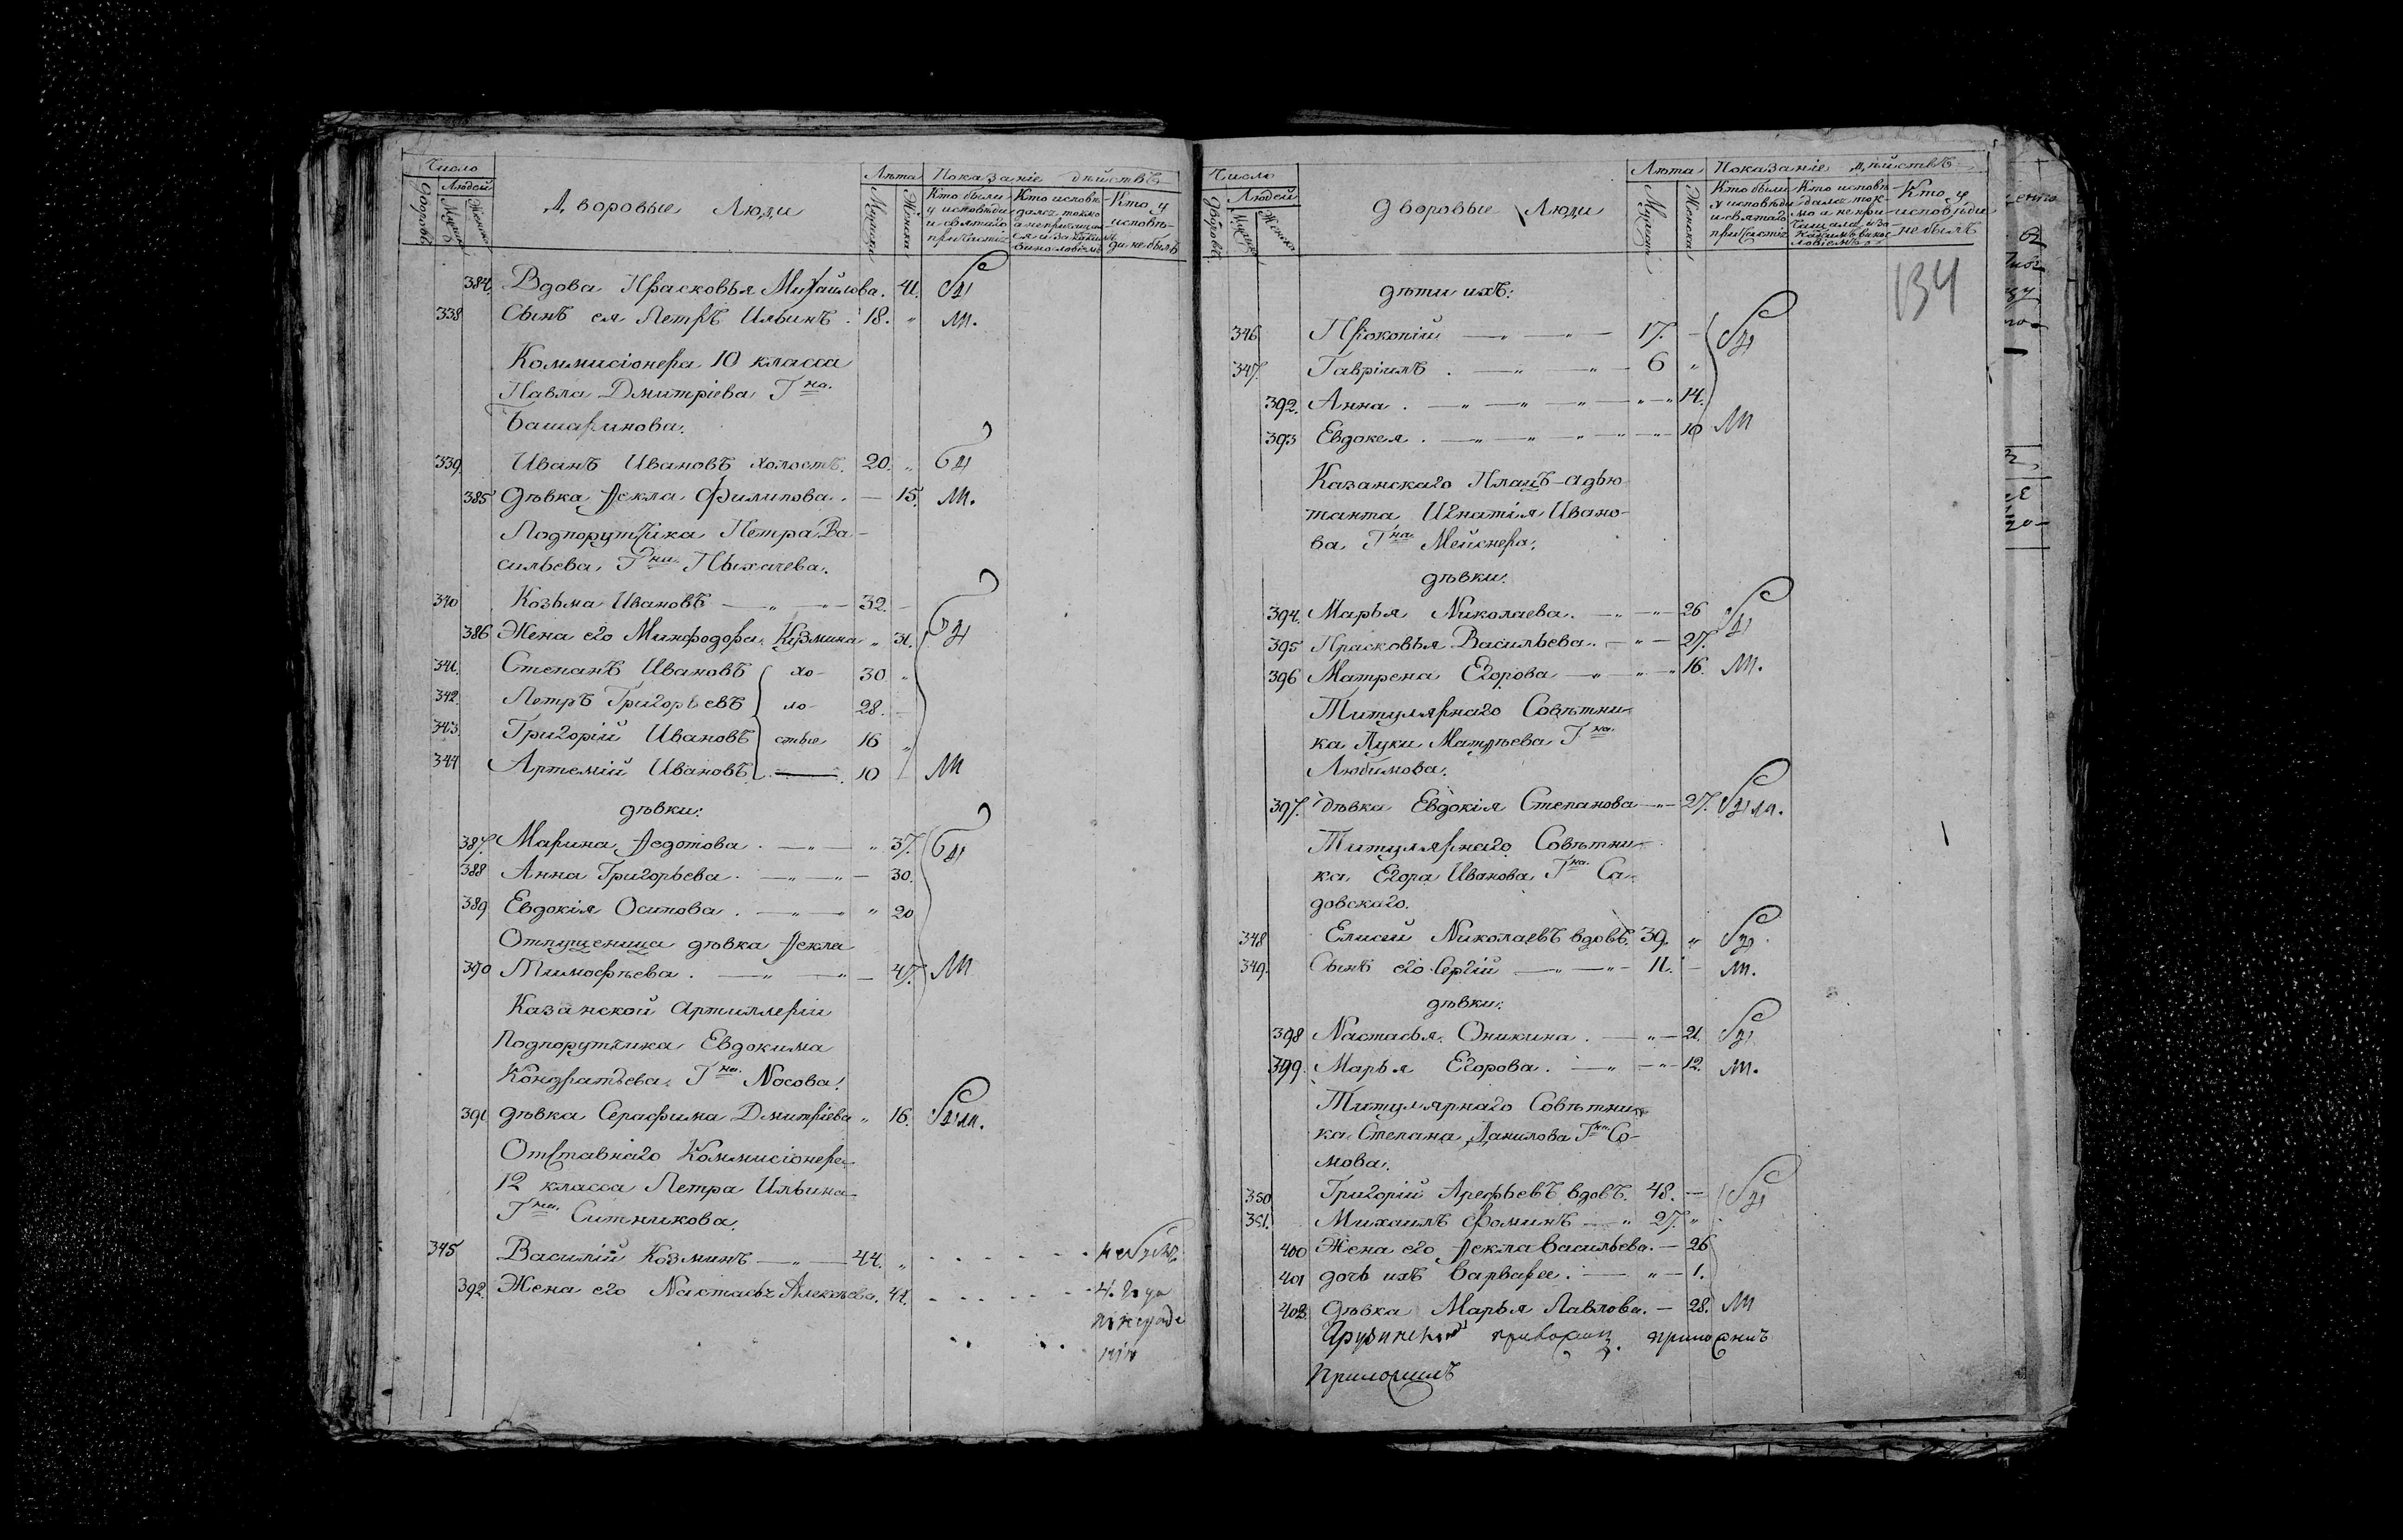 Число
Людей
Дворовъ
Мужеска
Женска
Дворовые Люди
Лѣта
Мужеска
Женска
Показаніе дѣйствъ
Кто были у исповѣди и святаго причастія
Кто исповѣдался токмо а не причащался и за какимъ винословіемъ
Кто у исповѣди не былъ
384. Вдова Прасковья Михайлова. 41. Бы
338 Сынъ ея Петръ Ильинъ. 18. „ ли.
Коммисіонера 10 класса
Павла Дмитріева Гна.
Башаринова.
339. Иванъ Ивановъ холостъ. 20. „ Бы
385 дѣвка Ѳекла Филипова. — 15. ли.
Подпорутчика Петра Ва-
сильева Гна Пыхачева.
340 Козьма Ивановъ — „ — „ — 32. —
386 Жена его Минфодора Кузмина „ 31. Бы
341. Степанъ Ивановъ хо- 30 „
342. Петръ Григорьевъ ло- 28. —
343. Григорій Ивановъ стые 16 „
344 Артемій Ивановъ — 10 — ли
дѣвки:
387. Марина Ѳедотова. — „ — „ 37. Бы
388 Анна Григорьева. — „ — „ — 30.
389 Евдокія Осипова. — „ — „ 20
Отпущеница дѣвка Ѳекла
390 Тимофѣева. — „ — „ — 47. ли
Казанской Артиллеріи
Подпорутчика Евдокима
Кондратьева Гна. Носова.
391 дѣвка Серафима Дмитріева „ 16. Были.
Отставнаго Коммисіонера
12 класса Петра Ильина
Гна Ситникова.
345 Василій Козминъ — „ — 44. „ - - - - - - не были
392. Жена его Настасья Алексѣева. 44. - - - - - - 4. года
по нераде
нію
Число
Людей
Дворовъ
Мужеска
Женска
дворовые Люди
Лѣта
Мужеска
Женска
Показаніе дѣйствъ
Кто были у исповѣди и святаго причастія
Кто исповѣдался токмо а не причащался и за какимъ винословіемъ
Кто у исповѣди не былъ
134
дѣти ихъ:
346 Прокопій — „ — „ — 17. — Бы
347. Гавріилъ. — „ — „ — 6 „
392. Анна. — „ — „ — „ — „ — „ 14.
393 Евдокея. — „ — „ — „ — „ — „ — 10 ли
Казанскаго Плацъ-адъю
танта Игнатія Ивано-
ва Гна Мейснера.
дѣвки.
394. Марья Николаева. — „ — „ — 26 Бы
395 Прасковья Васильева. — „ — 27.
396 Матрена Егорова — „ — „ — „ 16. ли.
Титулярнаго Совѣтни-
ка Луки Матвѣева Гна.
Любимова.
397. дѣвка Евдокія Степанова — „ — 27. Были.
Титулярнаго Совѣтни-
ка Егора Иванова Гна Са-
довскаго.
348 Елисей Николаевъ вдовъ. 39. „ Бы
349. Сынъ его Сергій — „ — „ — 11. — ли.
дѣвки:
398 Настасья Оникина. — „ — 21. Бы
399. Марья Егорова. — „ — „ — 12. ли.
Титулярнаго Совѣтни-
ка Степана Данилова Гна Со-
мова.
350 Григорій Арефьевъ вдовъ. 48. — Бы
351. Михаилъ Фоминъ — „ 27. „
400 Жена его Ѳекла Васильева. — 26
401 дочь ихъ Варвара. — „ — 1.
402. дѣвка Марья Павлова. — 28. ли